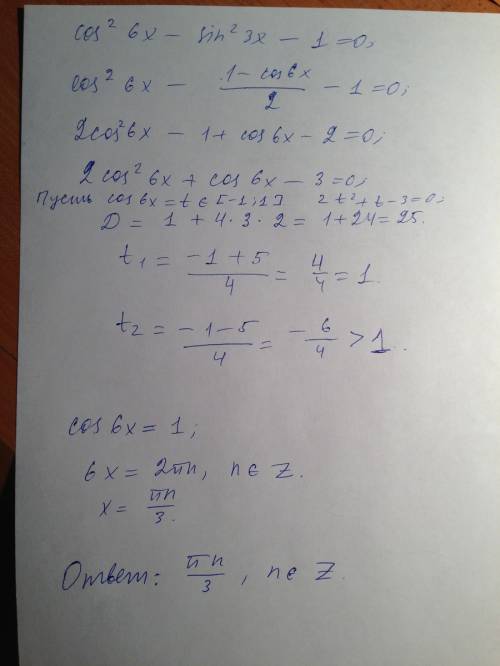 cos² 6x − sin² 3x − 1 = 0;
cos² 6x − (1 − cos6x)/2 − 1 = 0;
2cos²6x − 1 + cos6x − 2 = 0;
2cos² 6x + cos 6x − 3 = 0;
Пусть cos 6x = t ∈ [−1; 1] 2t² + t − 3 = 0;
D = 1 + 4·3·2 = 1 + 24 = 25.
t₁ = (−1 + 5)/4 = 4/4 = 1.
t₂ = (−1 − 5)/4 = −6/4 > 1.
cos 6x = 1;
6x = 2πn, n ∈ Z.
x = πn/3.
Ответ: πn/3, n ∈ Z.